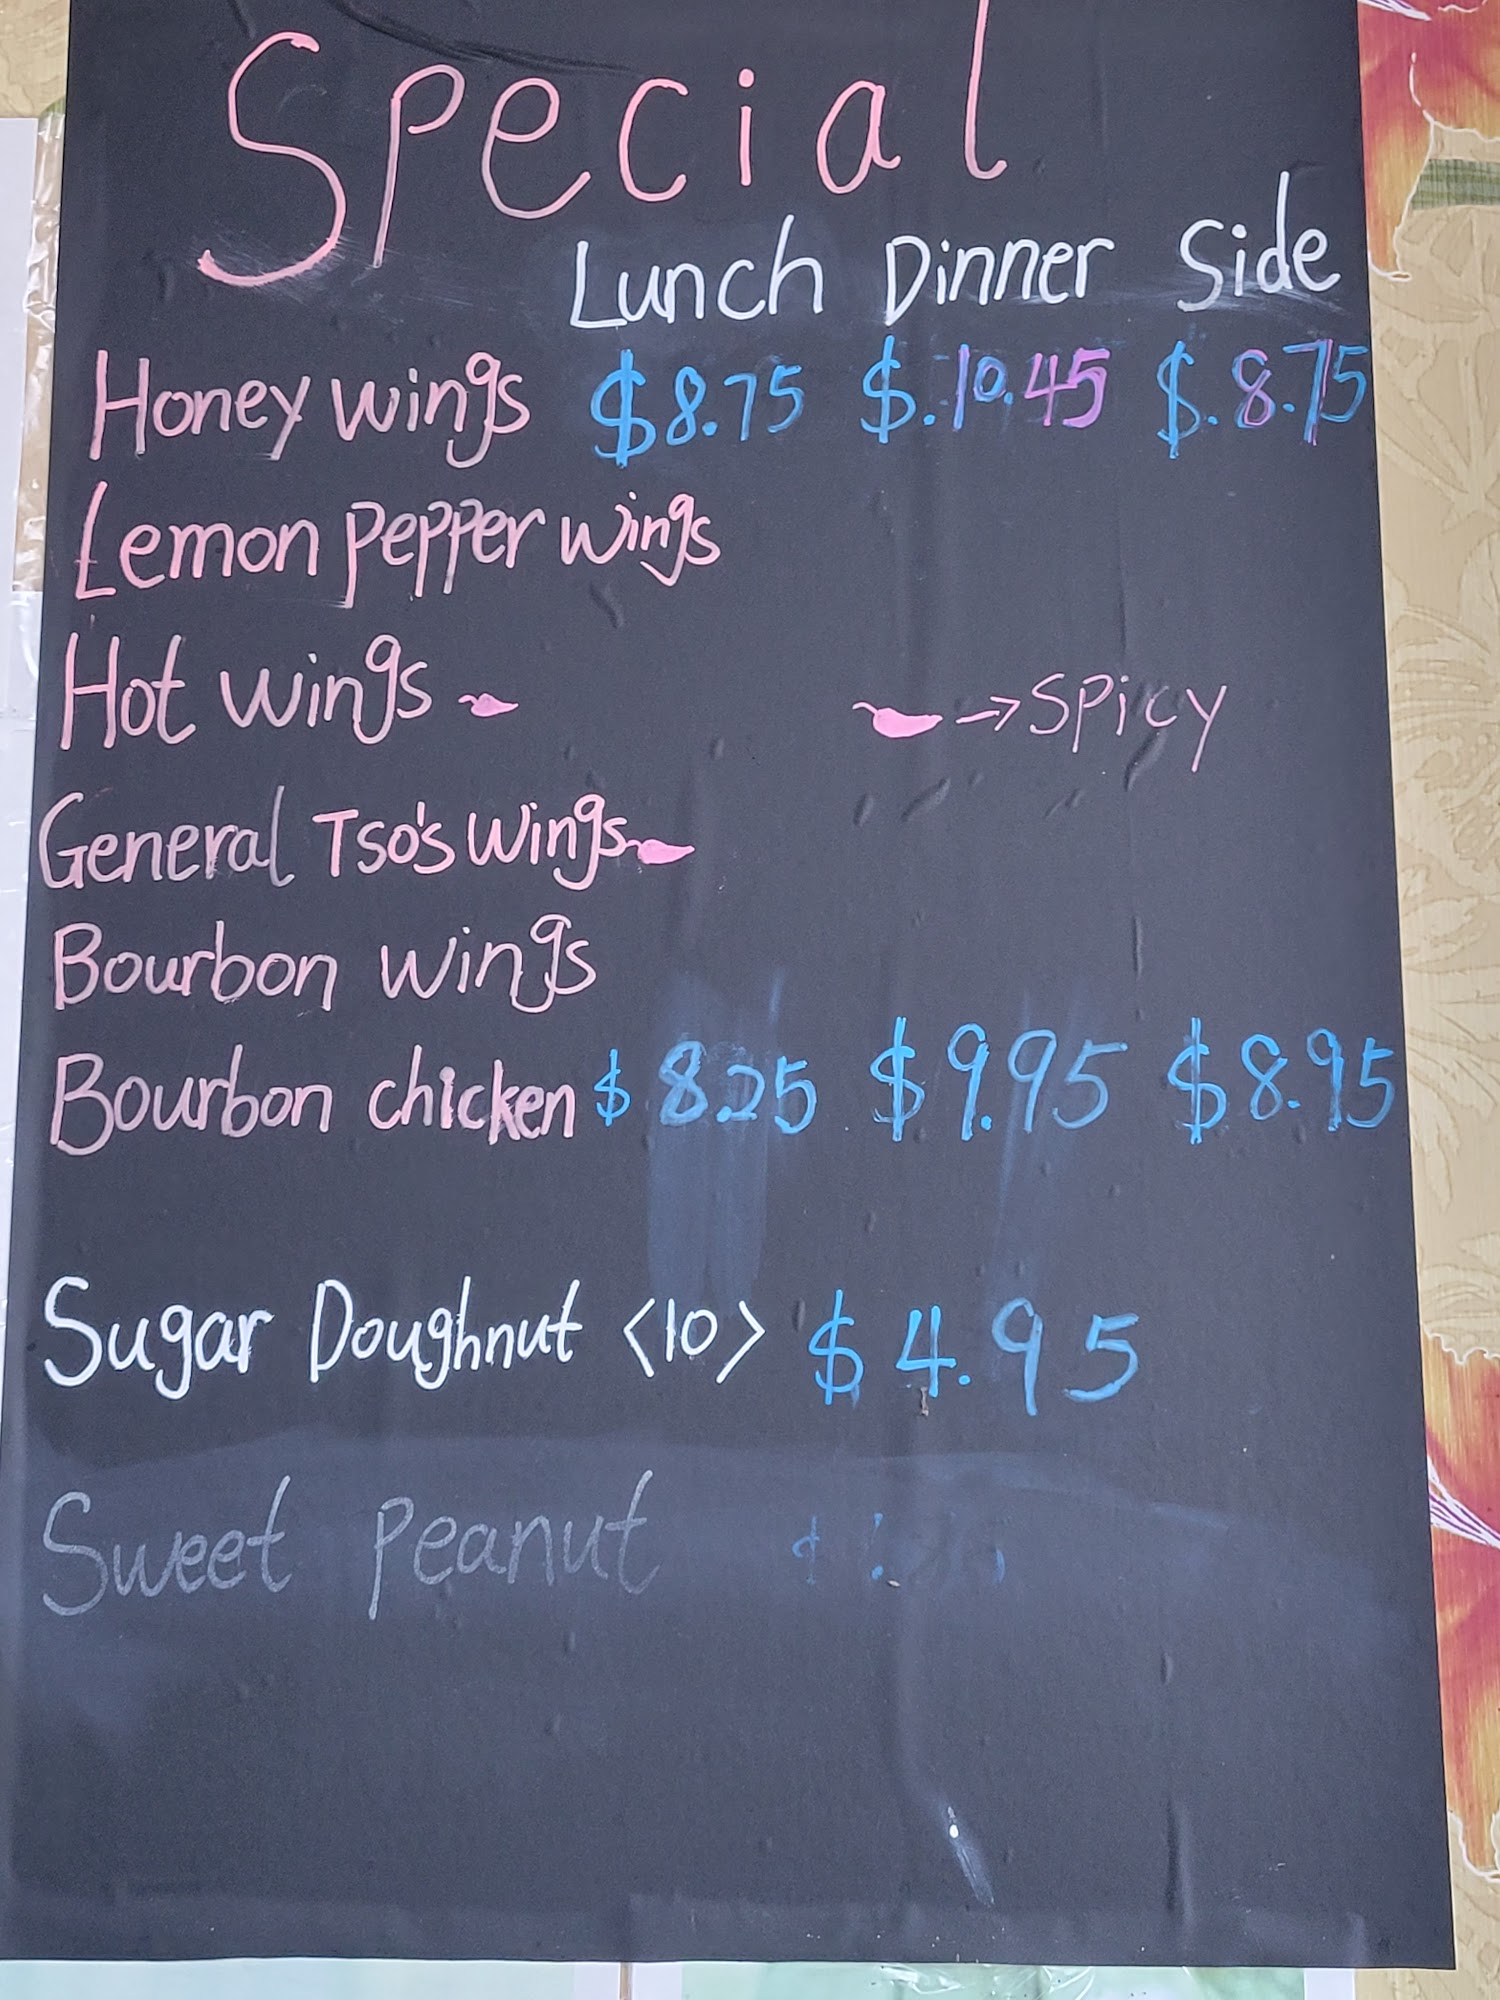 Special
Lunch Dinner Side
Honey wings $8.75 $.10.45 $.8.75
Lemon pepper wings
Hot wings → Spicy
General Tso's wings
Bourbon wings
Bourbon chicken $8.25 $9.95 $8.95
Sugar Doughnut <10> $4.95
Sweet peanut